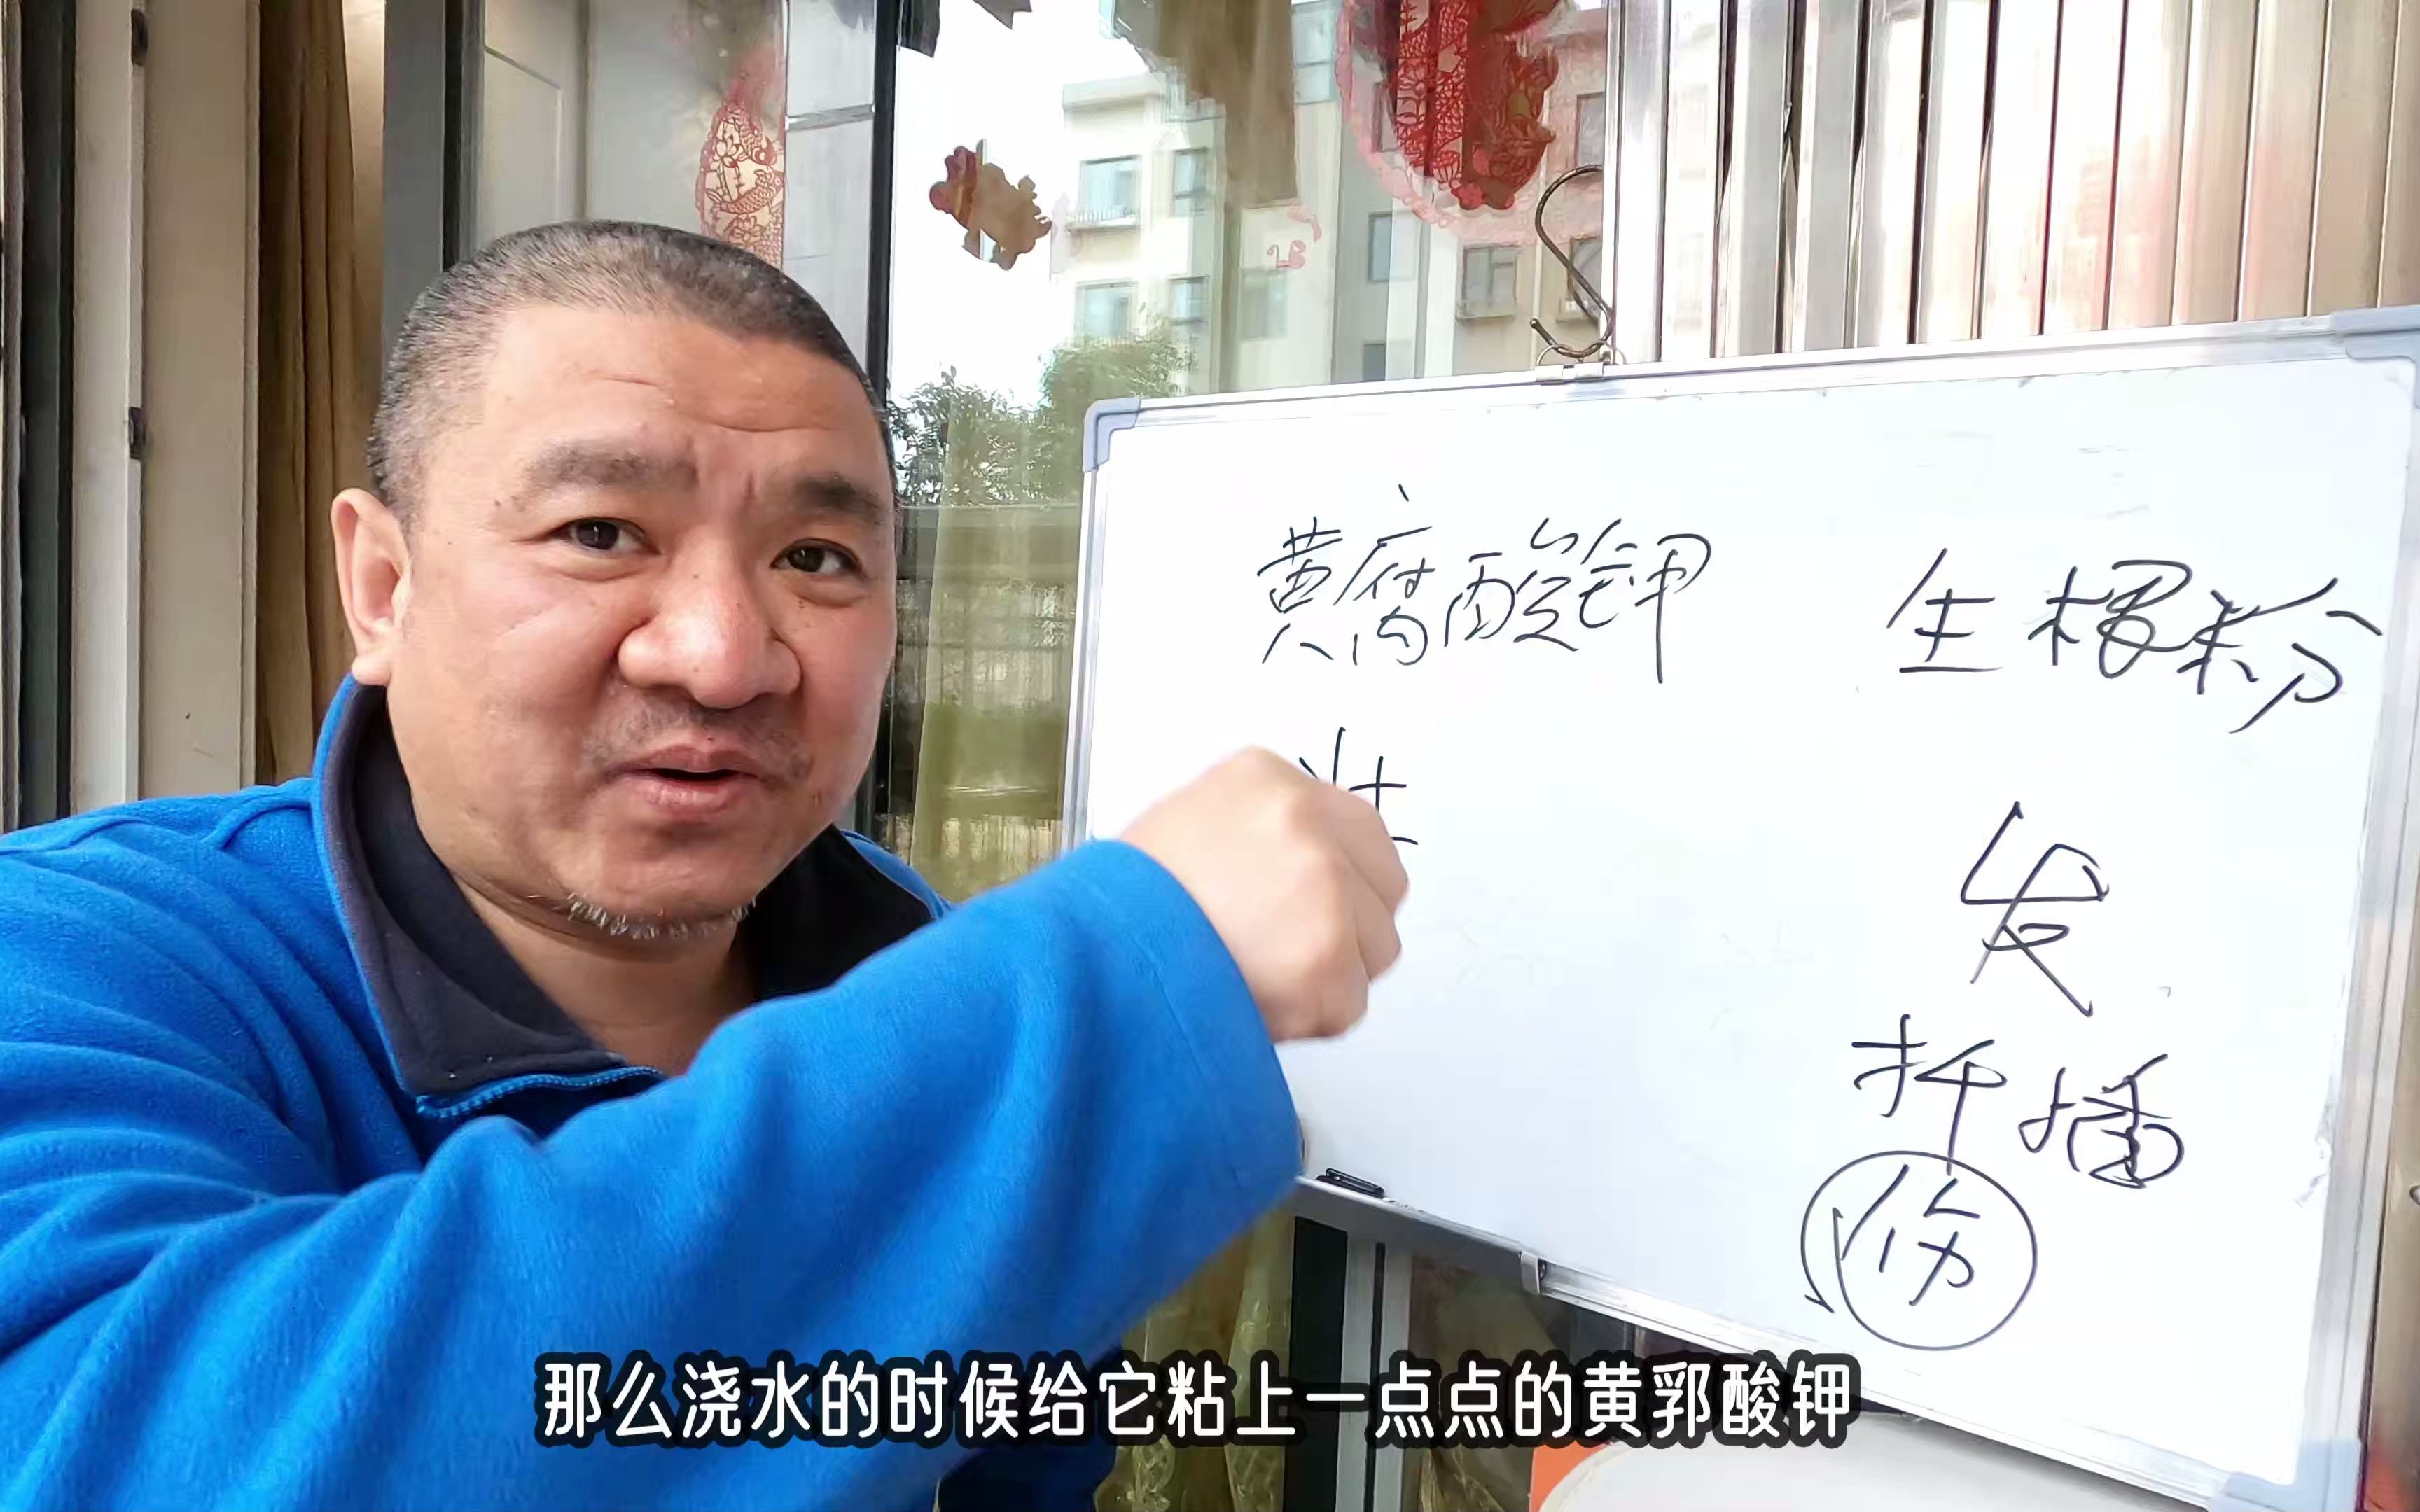 黄腐酸钾
生根粉
壮
发
扦插
伤
那么浇水的时候给它粘上一点点的黄郛酸钾